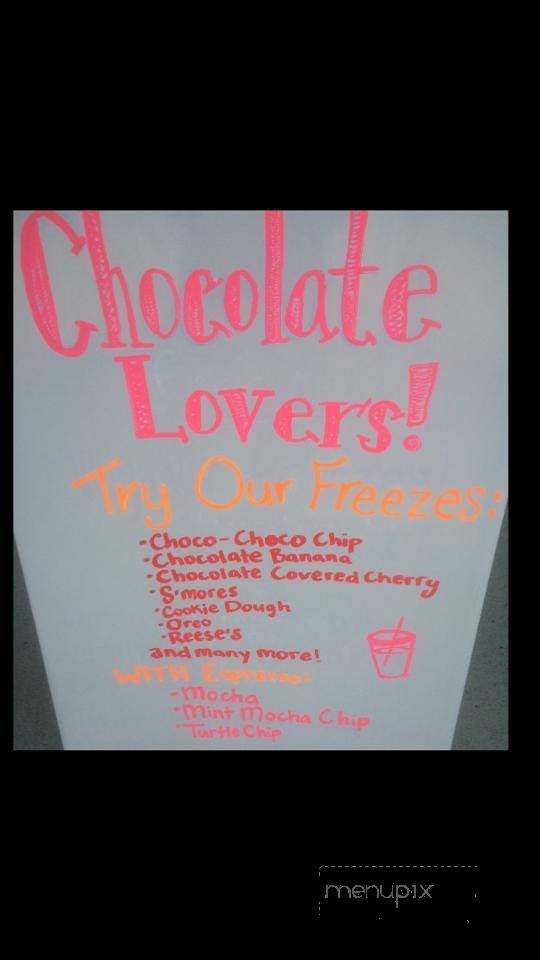 Chocolate
Lovers!
Try Our Freezes:
- Choco-Choco Chip
- Chocolate Banana
- Chocolate Covered Cherry
- S'mores
- Cookie Dough
- Oreo
- Reese's
and many more!
WITH Espresso:
- Mocha
- Mint Mocha Chip
- Turtle Chip
menupix